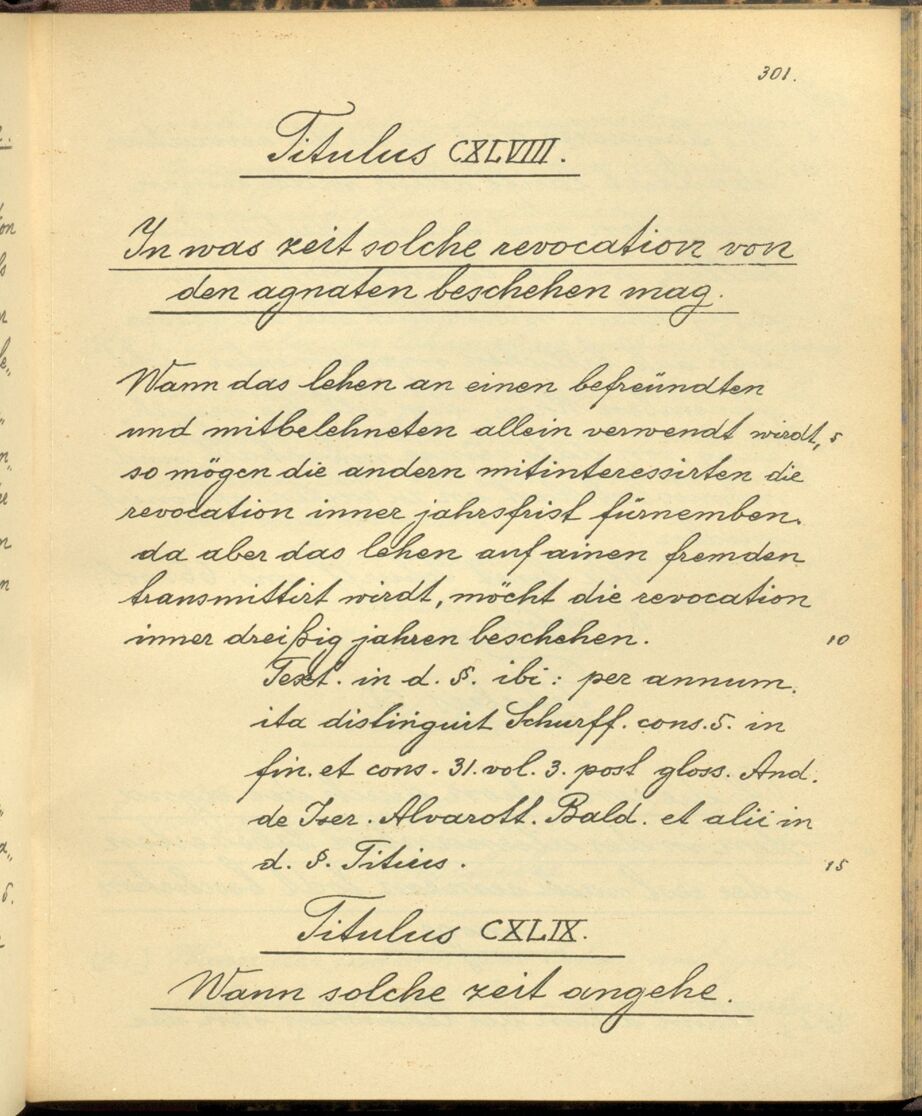 301.
Titulus CXLVIII.
In was zeit solche revocation von
den agnaten beschehen mag.
Wann das lehen an einen befreündten
und mitbelehneten allein verwendt wirdt, 5
so mögen die andern mitinteressirten die
revocation inner jahrsfrist fürnemben.
da aber das lehen auf ainen fremden
transmittirt wirdt, möcht die revocation
inner dreißig jahren beschehen. 10
Text. in d. §. ibi: per annum.
ita distinguit Schurff. cons. 5. in
fin. et cons. 31. vol. 3. post gloss. And.
de Iser. Alvarott. Bald. et alii in
d. §. Titius. 15
Titulus CXLIX.
Wann solche zeit angehe.